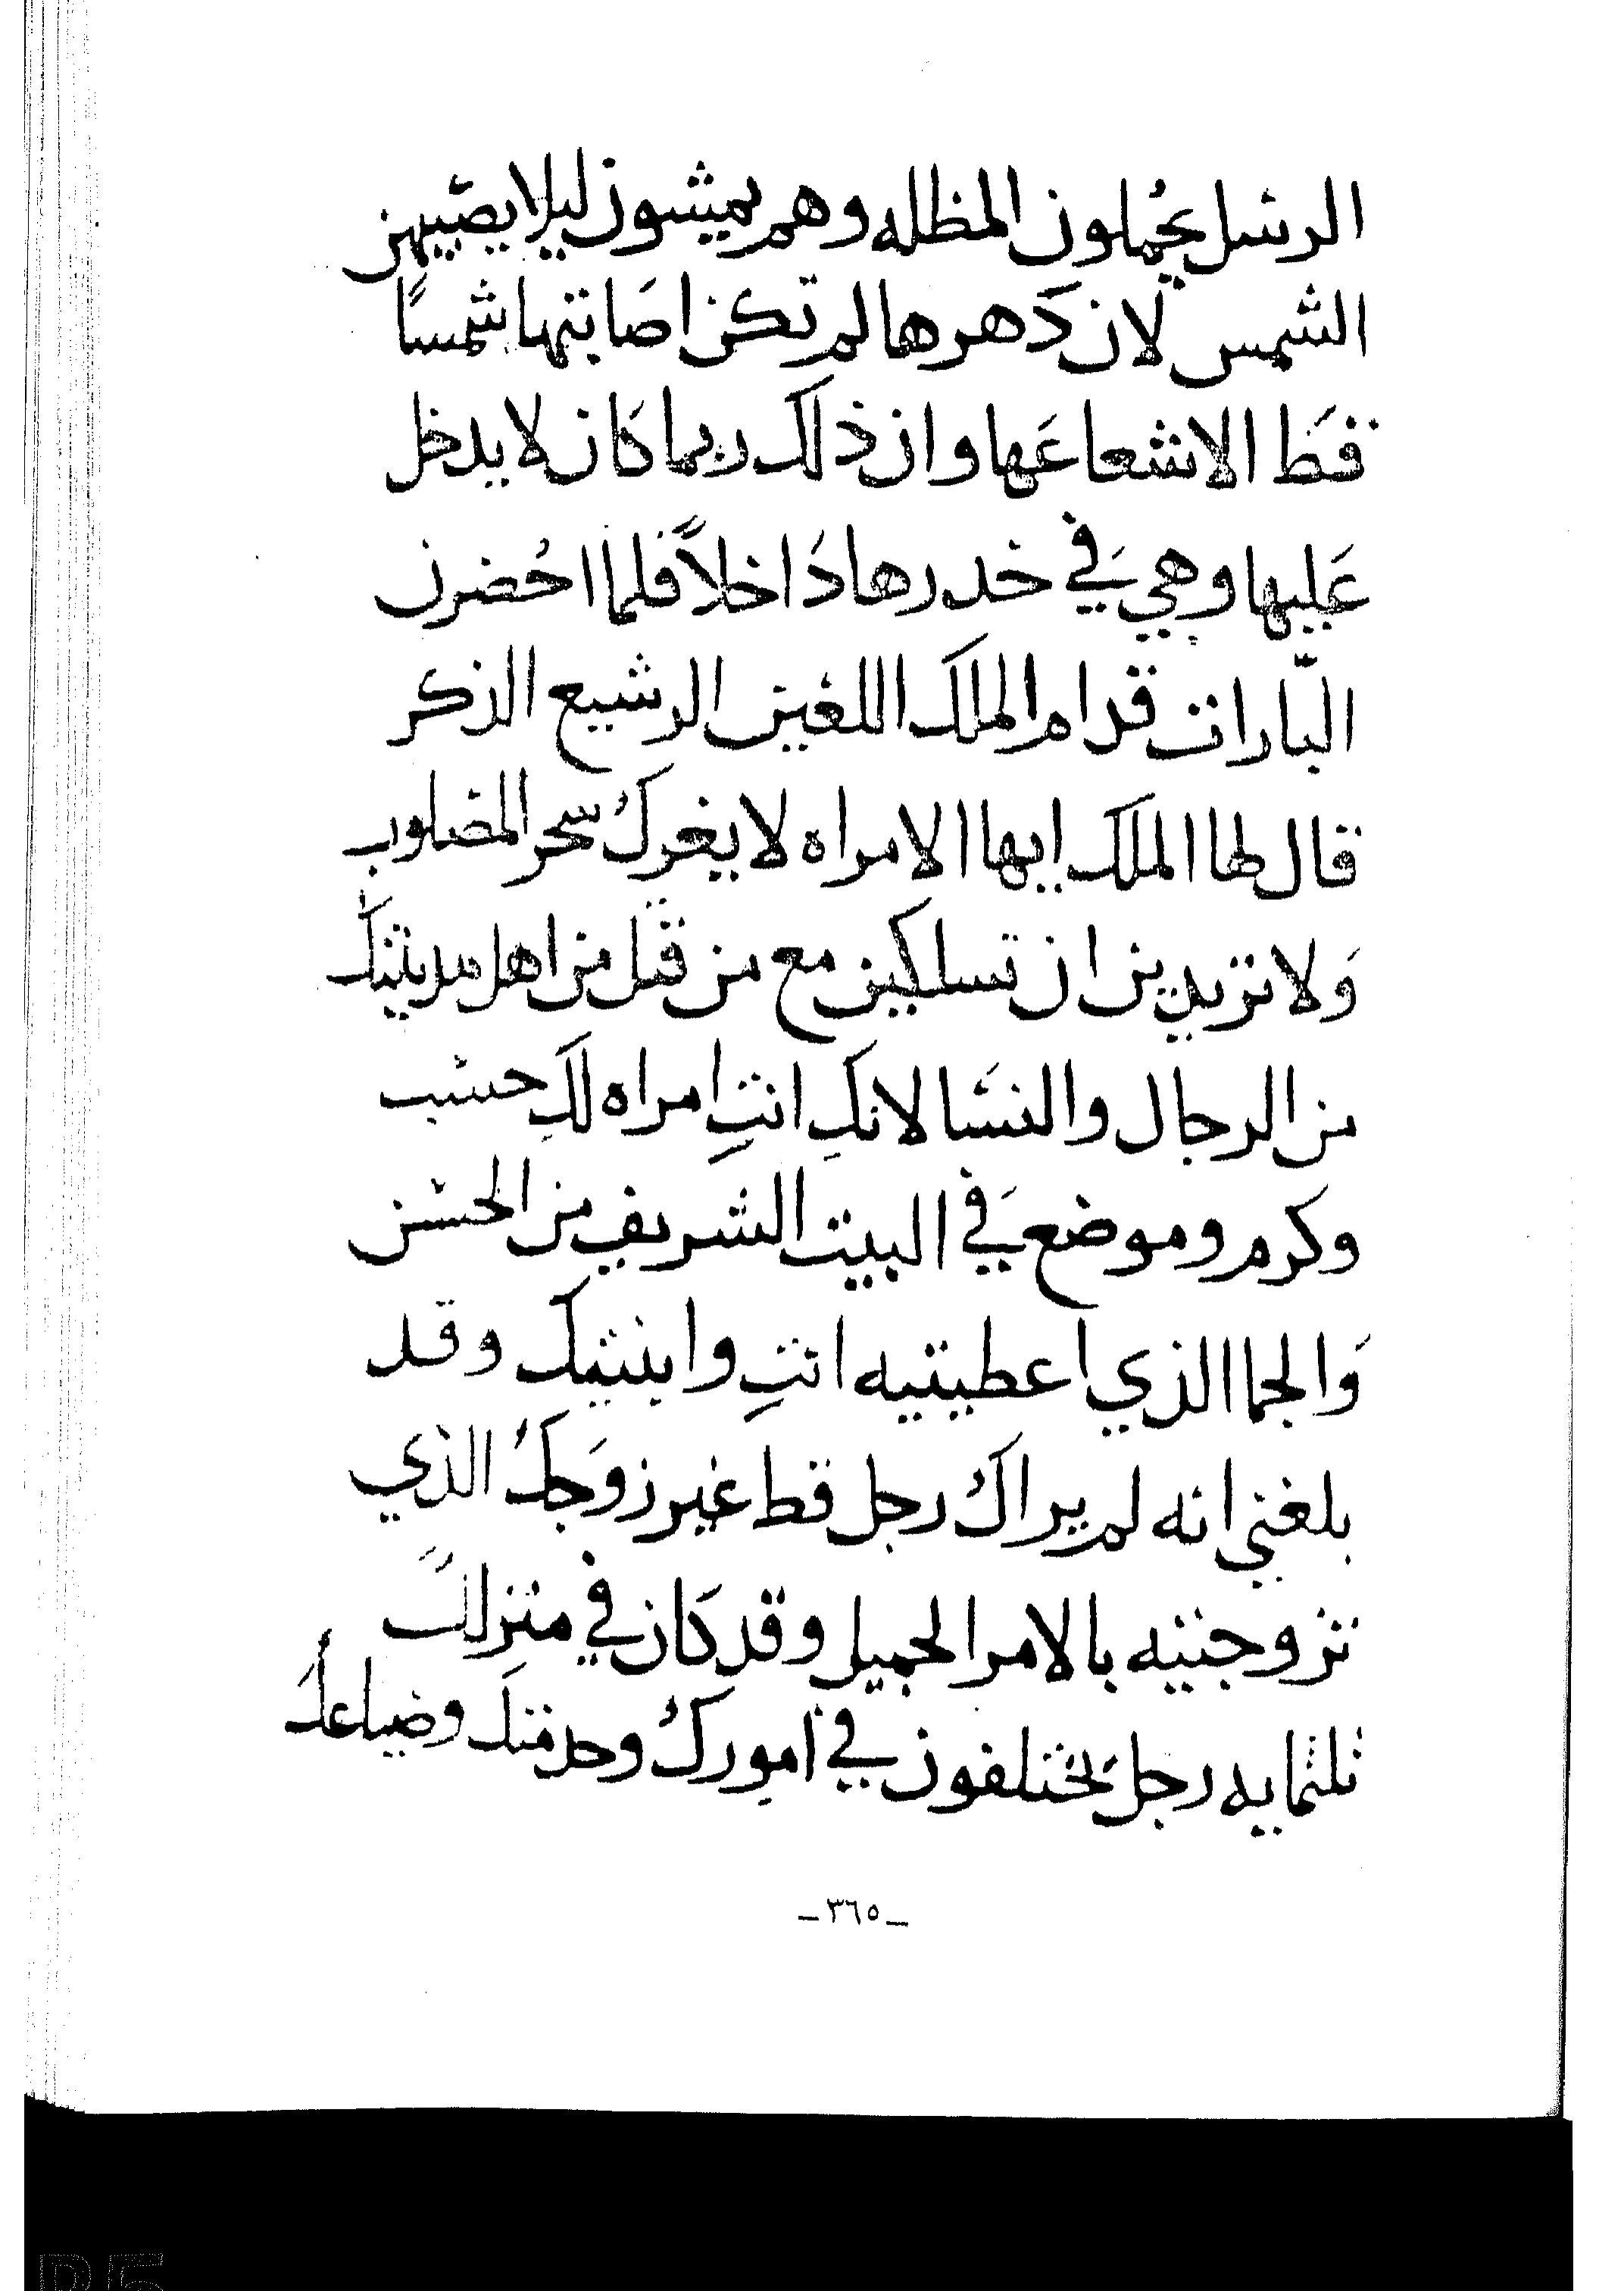 الرسل يحُملون المظله وهم يميشون ليلا يصيبهن
الشمس لان دَهرها لم تكن اصَابتها شمسًا
فقَط الا نشعاعَها وان ذلك ربما كان لا يدخل
عَليها وهي في خدرها دَاخلاً فلما احُضرن
البّارات قدام الملك اللعين الرشيع الذكر
قال لها الملك ايها الامراه لا يغرك سحر المصلوب
وَلا تريدين ان تسلكين مع من قتل من اهل مدينتك
من الرجال والنسَا لانكِ انتِ امراه لكِ حسب
وكرم وموضع في البيت الشريف من الحسن
وَالجما الذي اعطيتيه انتِ وابنتيك وقد
بلغني انه لم يراك رجل قط غير زوَجك الذي
تزوجتيه بالامر الجميل وقد كان في منزلك
ثلثمايه رجل يختلفون في امورك وخدمتك وضياعك
_٣٦٥_